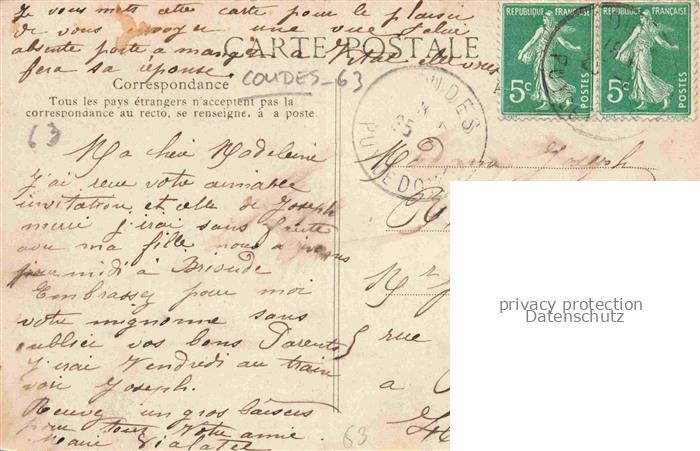 Je vous mets cette carte pour le plaisir
de vous envoyer une vue
absente porte a manger a
fera sa réponse.
CARTE POSTALE
COUDES-63
Correspondance
Tous les pays étrangers n'acceptent pas la
correspondance au recto, se renseigner à la poste
63
REPUBLIQUE FRANÇAISE
5c
REPUBLIQUE FRANÇAISE
5c
PUY DE DOME
Ma chère Madeleine
J'ai reçu votre aimable
invitation et celle de Joseph
merci j'irai sans faute
avec ma fille nous
midi à Brioude
Embrassez pour moi
votre mignonne sans
oublier vos bons Parents
J'irai Vendredi au train
voir Joseph.
Recevez un gros baisers
pour tous Votre amie
Marie Vialatel
Madame Joseph
5 rue
a
63
privacy protection
Datenschutz